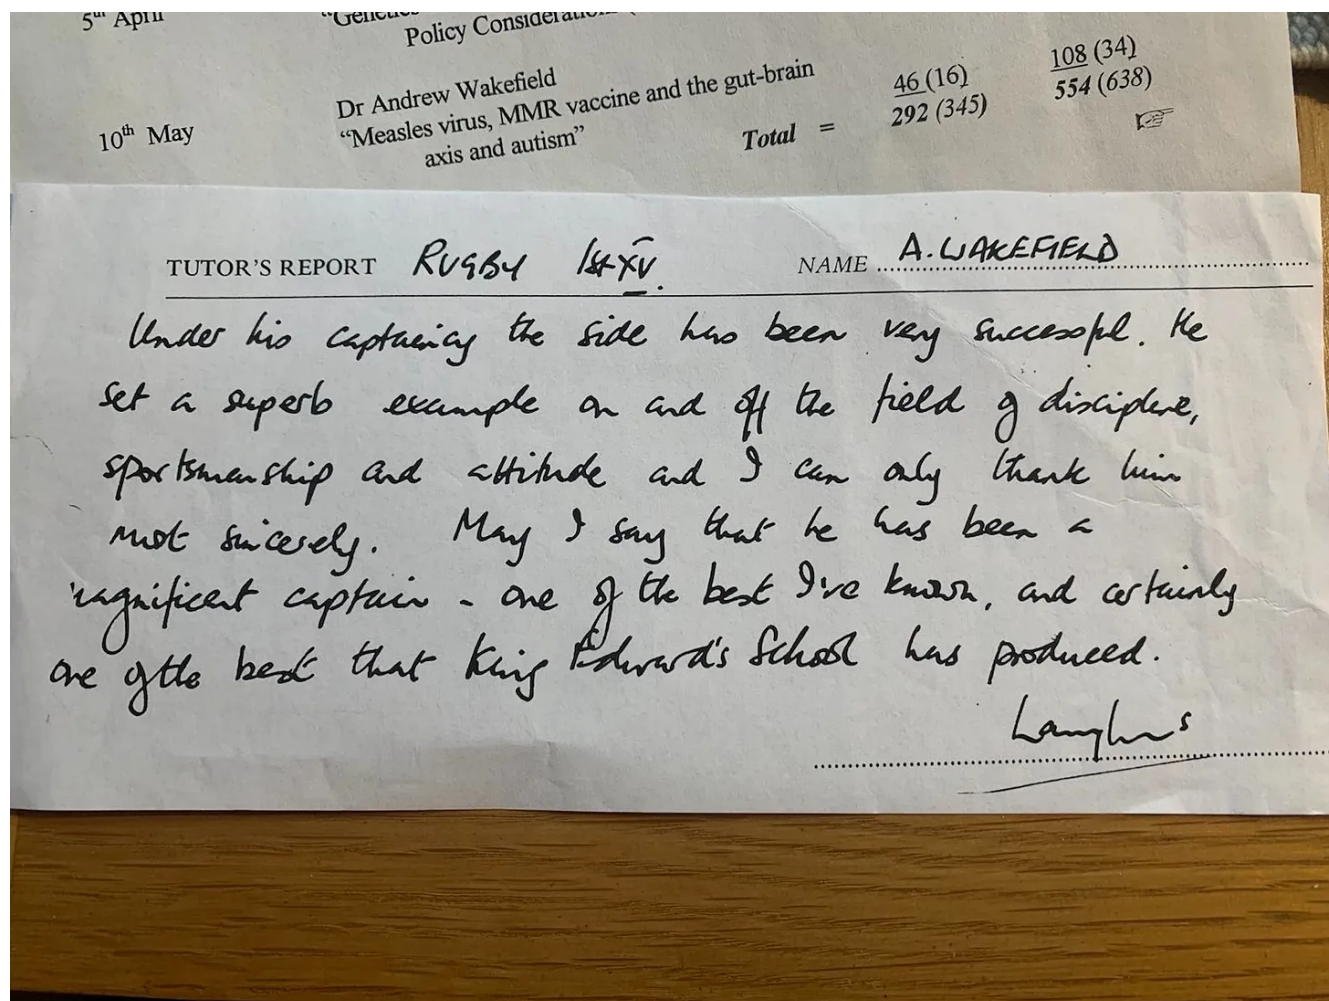 5th April
"Genetics
Policy Considerations
Dr Andrew Wakefield
10th May "Measles virus, MMR vaccine and the gut-brain
axis and autism"
46 (16) 108 (34)
Total = 292 (345) 554 (638)
TUTOR'S REPORT RUGBY 1st XV. NAME A. WAKEFIELD
Under his captaincy the side has been very successful. He
set a superb example on and off the field of discipline,
sportsmanship and attitude and I can only thank him
most sincerely. May I say that he has been a
magnificent captain - one of the best I've known, and certainly
one of the best that King Edward's School has produced.